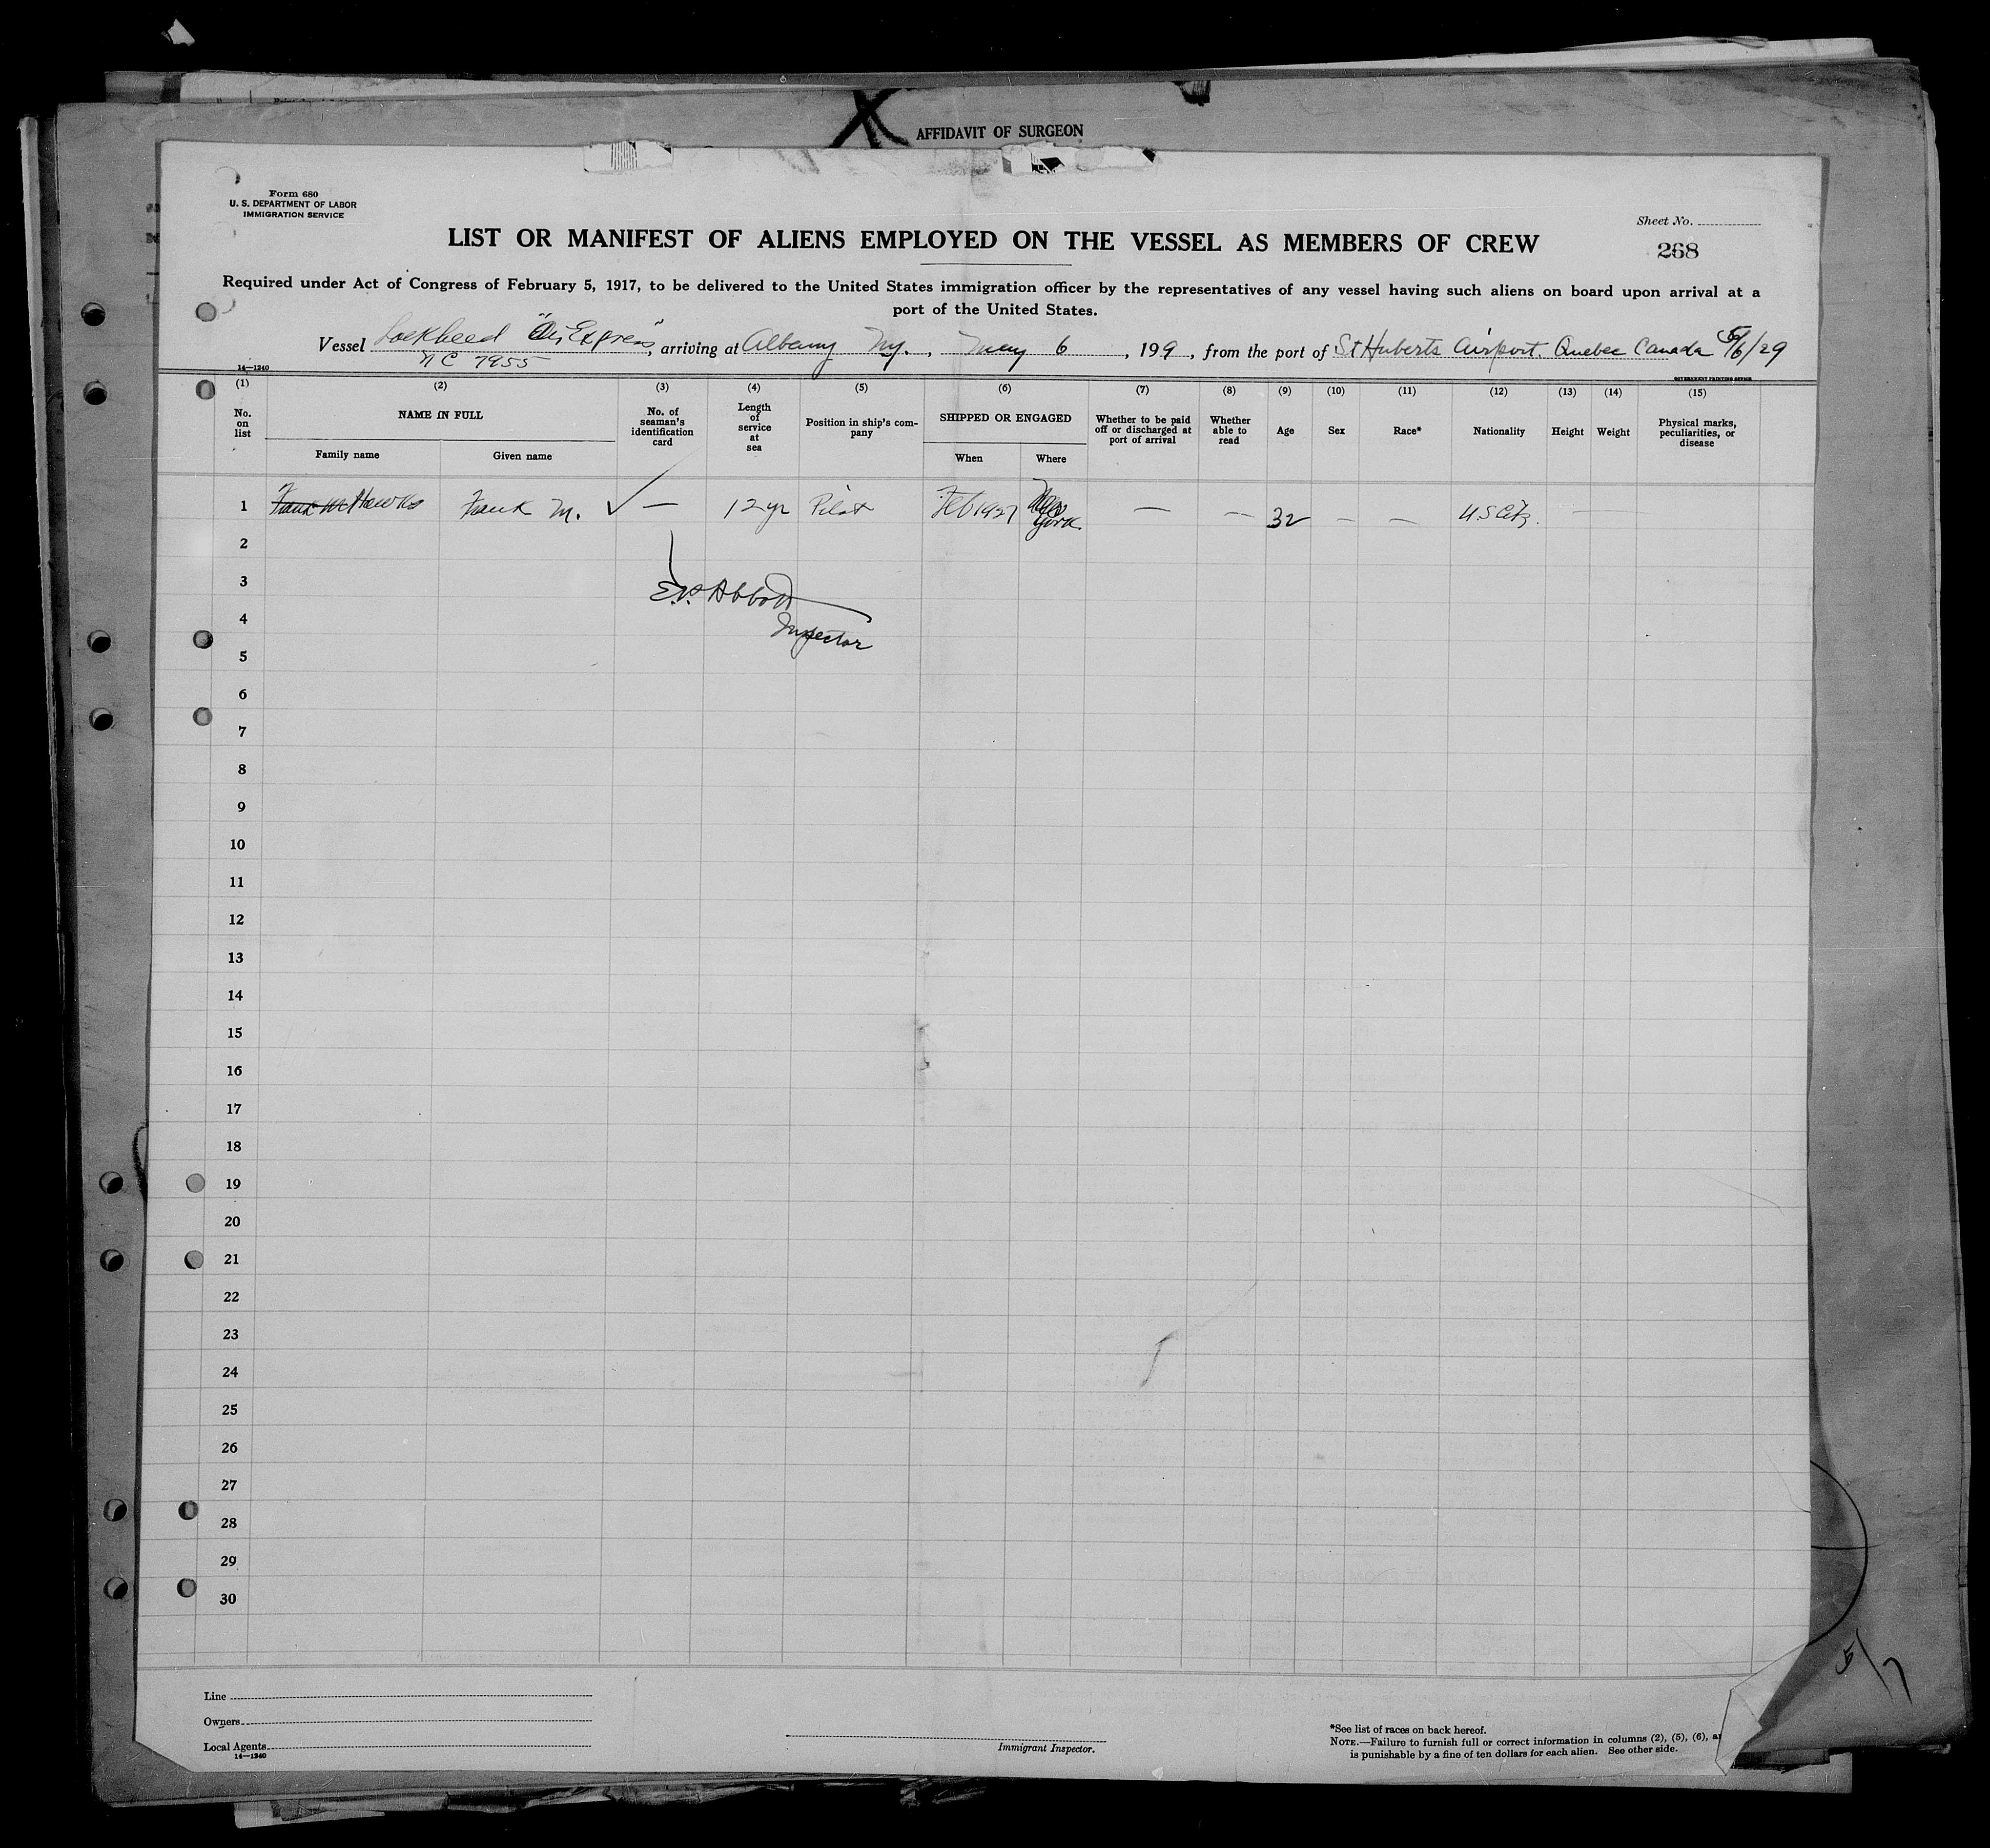 AFFIDAVIT OF SURGEON
Form 680
U. S. DEPARTMENT OF LABOR
IMMIGRATION SERVICE
Sheet No.
268
LIST OR MANIFEST OF ALIENS EMPLOYED ON THE VESSEL AS MEMBERS OF CREW
Required under Act of Congress of February 5, 1917, to be delivered to the United States immigration officer by the representatives of any vessel having such aliens on board upon arrival at a
port of the United States.
Vessel Lockheed "Air Express", arriving at Albany Ny., May 6, 199, from the port of St Huberts Airport. Quebec Canada 5/6/29
NC 7955
14—1240
GOVERNMENT PRINTING OFFICE
(1) (2) (3) (4) (5) (6) (7) (8) (9) (10) (11) (12) (13) (14) (15)
No. on list
NAME IN FULL
Family name
Given name
No. of seaman's identification card
Length of service at sea
Position in ship's company
SHIPPED OR ENGAGED
When
Where
Whether to be paid off or discharged at port of arrival
Whether able to read
Age
Sex
Race*
Nationality
Height
Weight
Physical marks, peculiarities, or disease
1 Frank M Hawks Frank M. ✓ — 12 yr Pilot Feb 1927 New York — — 32 — — U.S Citz. —
2
3
E.V. Abbott
4
Inspector
5
6
7
8
9
10
11
12
13
14
15
16
17
18
19
20
21
22
23
24
25
26
27
28
29
30
5/7
Line
Owners
Local Agents
14—1240
Immigrant Inspector.
*See list of races on back hereof.
NOTE.—Failure to furnish full or correct information in columns (2), (5), (6), a
is punishable by a fine of ten dollars for each alien. See other side.